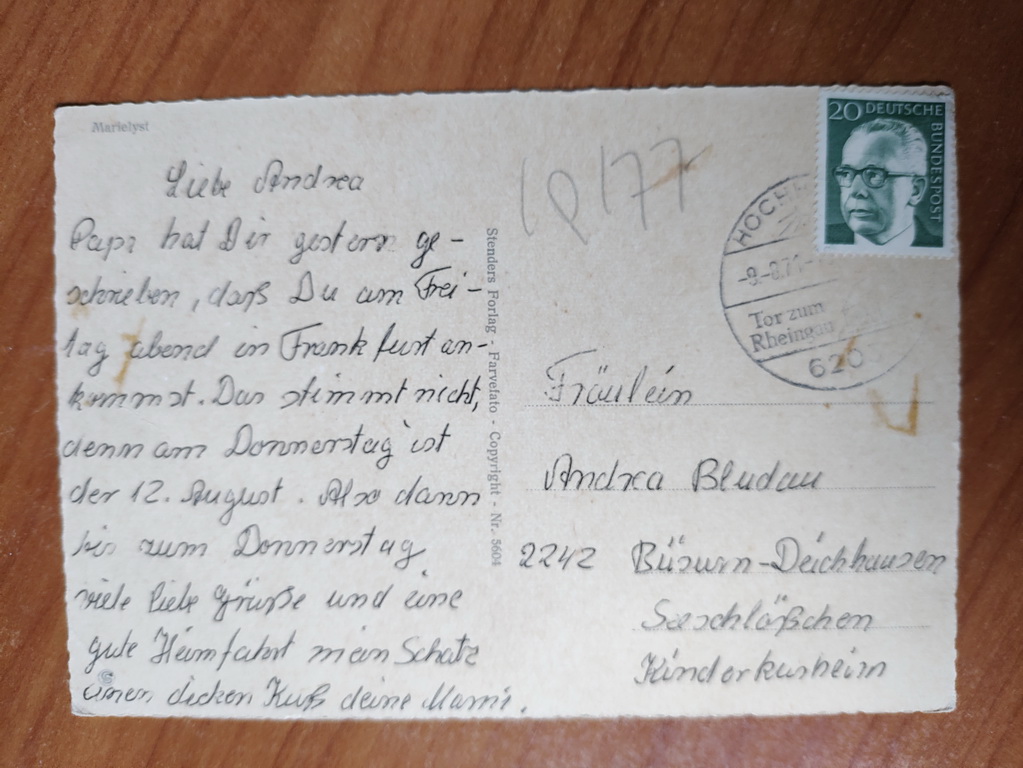 Marielyst
Liebe Andrea
Papi hat Dir gestern ge-
schrieben, daß Du am Frei-
tag abend in Frankfurt an-
kommst. Das stimmt nicht,
denn am Donnerstag ist
der 12. August. Also dann
bis zum Donnerstag
viele liebe Grüße und eine
gute Heimfahrt mein Schatz
einen dicken Kuß deine Mami.
Stenders Forlag - Farvefoto - Copyright - Nr. 5604
20 DEUTSCHE
BUNDESPOST
HOCH
Tor zum
Rheingau
620
Fräulein
Andrea Bludau
2242 Büsum-Deichhausen
Seeschlößchen
Kinderkurheim